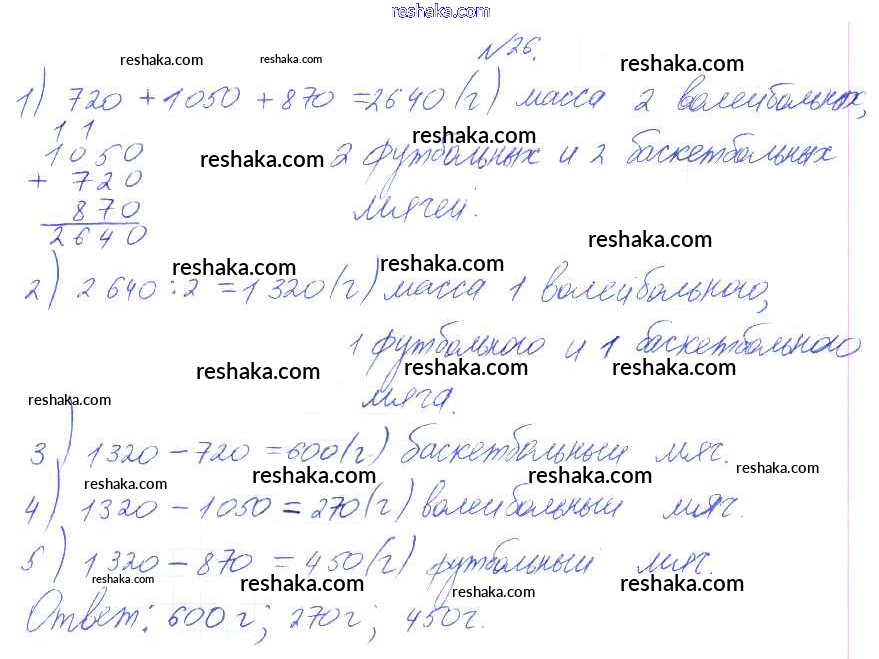 reshaka.com
№26.
reshaka.com reshaka.com reshaka.com
1) 720 + 1050 + 870 = 2640 (г) масса 2 волейбольных,
1 1
1050
reshaka.com
reshaka.com 2 футбольных и 2 баскетбольных
+ 720
870
мячей.
2640
reshaka.com
reshaka.com reshaka.com
2) 2640 : 2 = 1320 (г) масса 1 волейбольного,
1 футбольного и 1 баскетбольного
reshaka.com reshaka.com reshaka.com
reshaka.com мяча.
3) 1320 - 720 = 600 (г) баскетбольный мяч.
reshaka.com reshaka.com reshaka.com reshaka.com
4) 1320 - 1050 = 270 (г) волейбольный мяч.
5) 1320 - 870 = 450 (г) футбольный мяч.
reshaka.com reshaka.com reshaka.com reshaka.com
Ответ: 600 г; 270 г; 450 г.